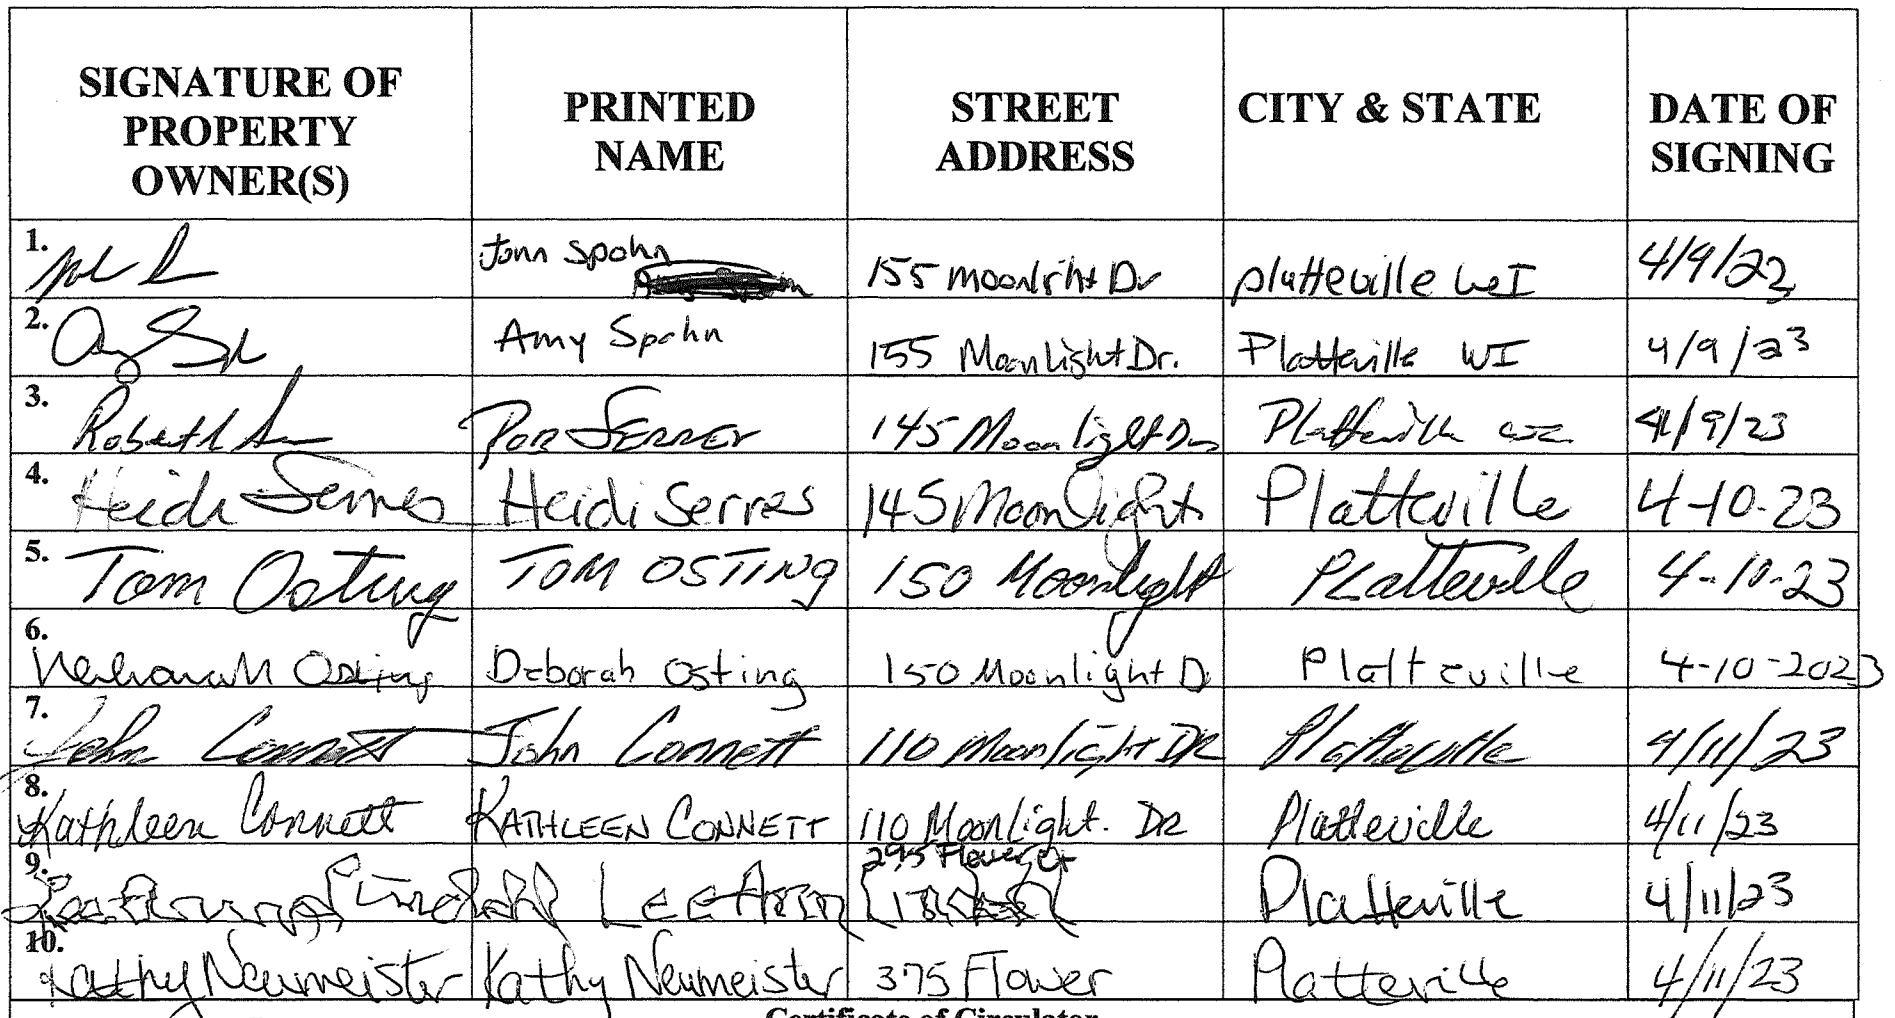 SIGNATURE OF PROPERTY OWNER(S) PRINTED NAME STREET ADDRESS CITY & STATE DATE OF SIGNING
1. John Spohn 155 Moonlight Dr Platteville WI 4/9/23
2. Amy Spohn 155 Moonlight Dr. Platteville WI 4/9/23
3. Robert 145 Moonlight Dr Platteville WI 4/9/23
4. Heidi Serres Heidi Serres 145 Moonlight Platteville 4-10-23
5. Tom Osting TOM OSTING 150 Moonlight Platteville 4-10-23
6. Deborah Osting Deborah Osting 150 Moonlight D Platteville 4-10-2023
7. John Connett John Connett 110 Moonlight DR Platteville 4/11/23
8. Kathleen Connett KATHLEEN CONNETT 110 Moonlight. DR Platteville 4/11/23
295 Flower Ct
9. LeeAnn Platteville 4/11/23
10. Kathy Neumeister Kathy Neumeister 375 Flower Platteville 4/11/23
Certificate of Circulator